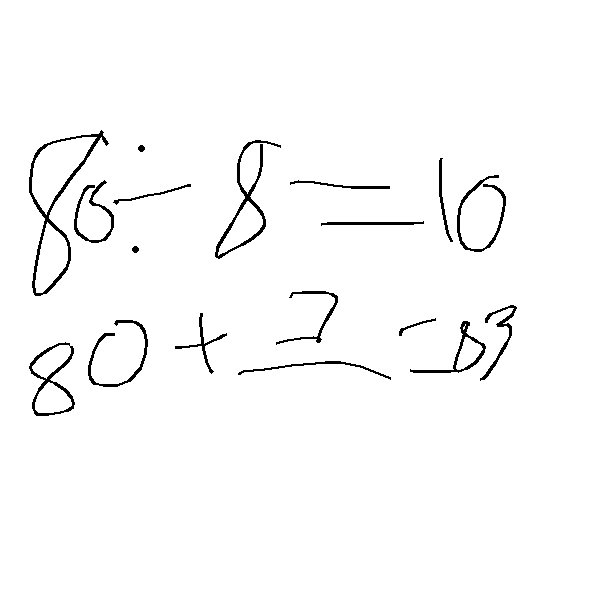 80 ÷ 8 = 10
80 + 7 = 83